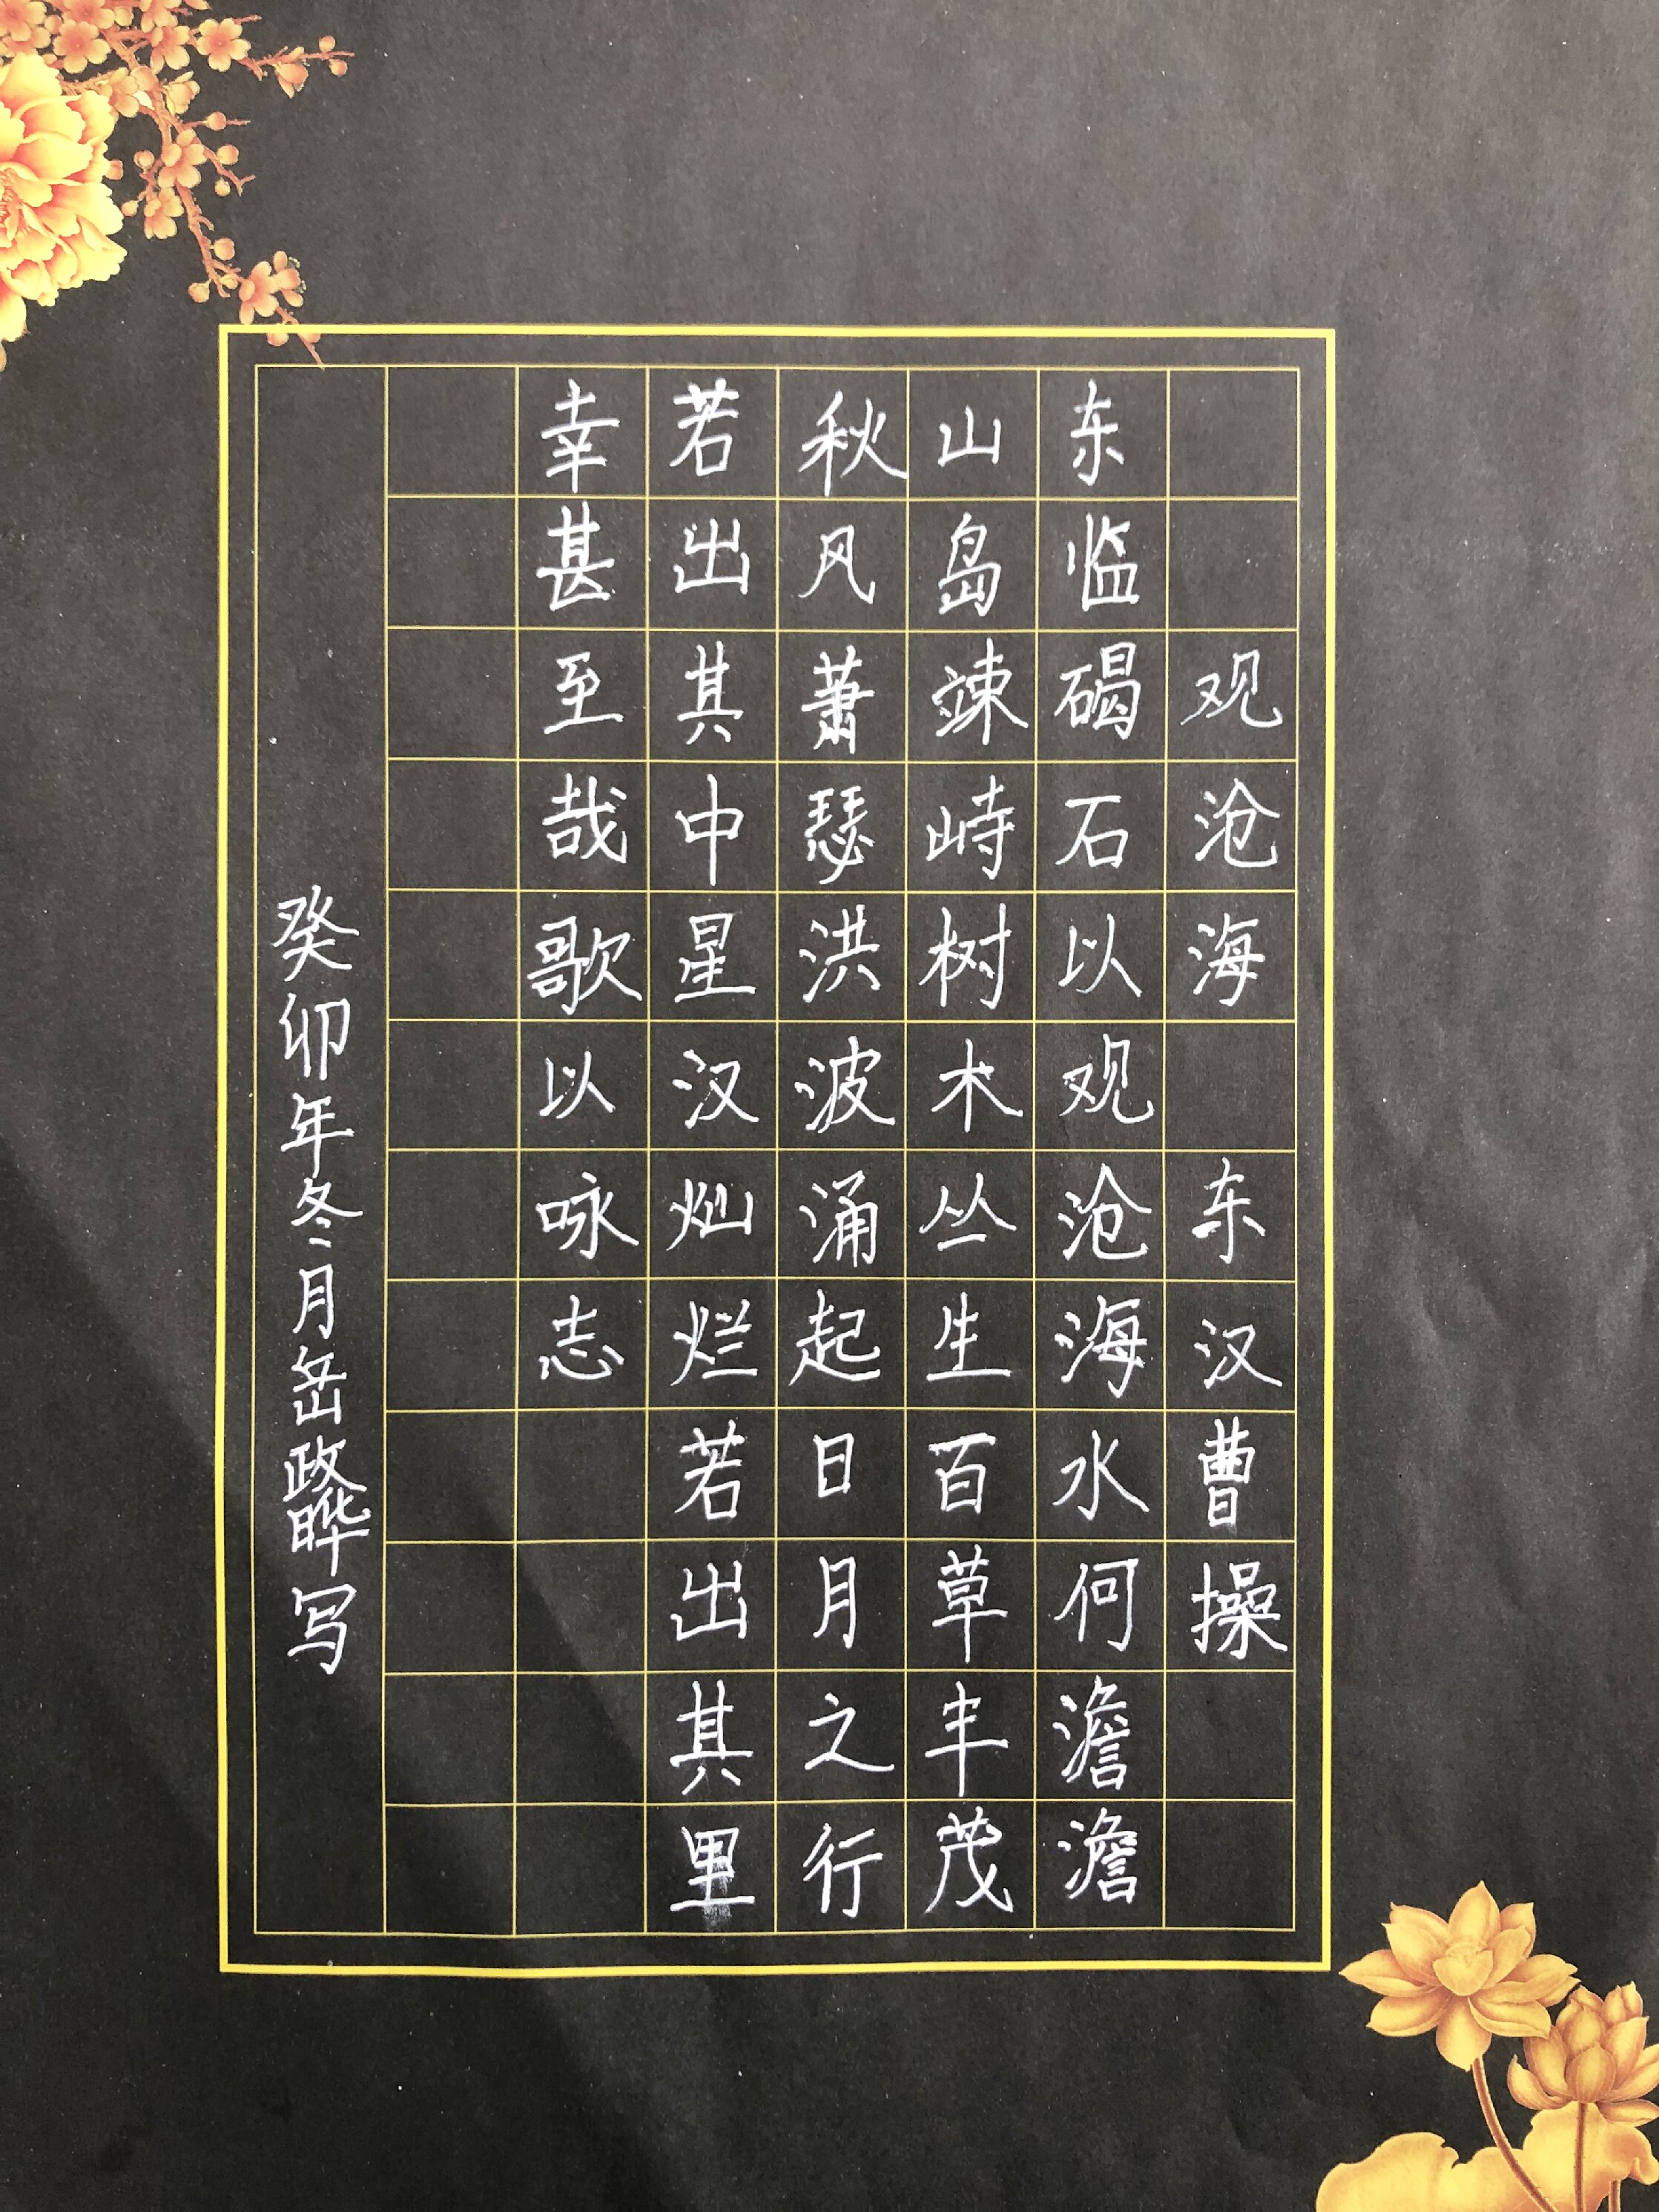 观沧海 东汉曹操
东临碣石以观沧海水何澹澹
山岛竦峙树木丛生百草丰茂
秋风萧瑟洪波涌起日月之行
若出其中星汉灿烂若出其里
幸甚至哉歌以咏志
癸卯年冬月岳政晔写